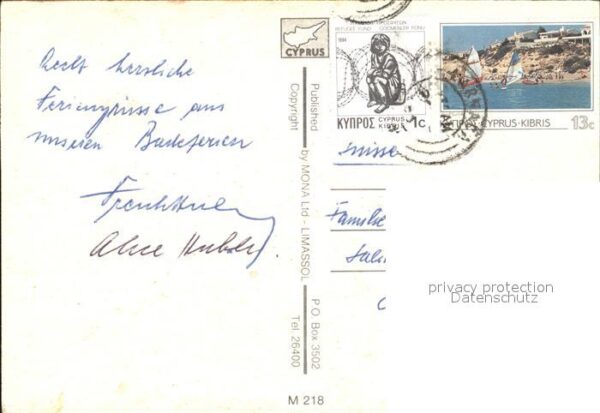 Recht herzliche
Feriengrüsse aus
unseren Badeferien
Alice Huber
CYPRUS
Published by MONA Ltd - LIMASSOL P.O. Box 3502
Copyright Tel. 26400
M 218
REFUGEE FUND GÖÇMENLER FONU
1984
ΚΥΠΡΟΣ CYPRUS KIBRIS 1c
CYPRUS·KIBRIS 13c
Suisse
Familie
privacy protection
Datenschutz